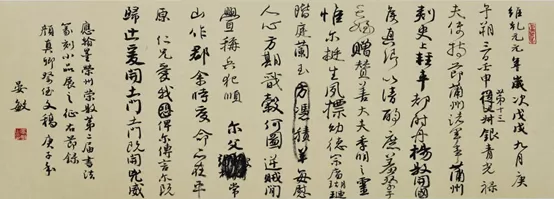 維乾元元年歲次戊戌九月庚
午朔三日壬申第十三叔銀青光祿
夫使持節蒲州諸軍事蒲州
刺史上輕車都尉丹楊縣開國
侯真卿以清酌庶羞祭于
亡姪贈贊善大夫季明之靈
惟爾挺生夙標幼德宗廟瑚璉
階庭蘭玉方憑積善每慰
人心方期戩穀何圖逆賊間
釁稱兵犯順爾父常
山作郡余時受命亦在平
原仁兄愛我俾爾傳言爾既
歸止爰開土門土門既開兇威
應翰墨榮州第二届書法
篆刻小品展之征右節錄
顏真卿祭侄文稿庚子年
晏敏